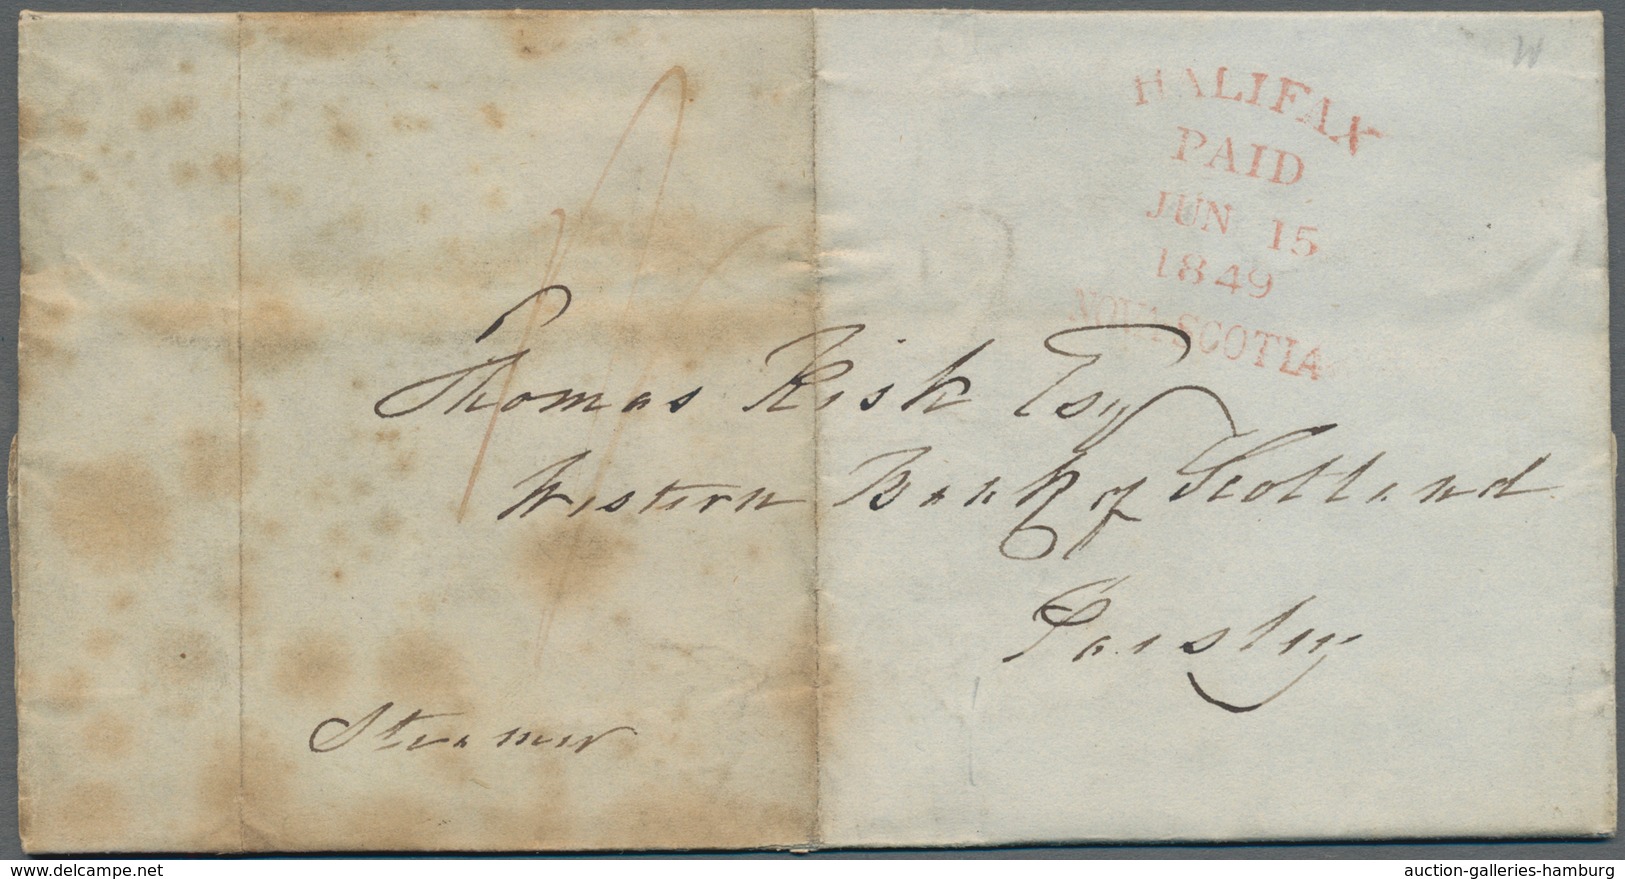 HALIFAX
PAID
JUN 15
1849
NOVA SCOTIA
Thomas Risk Esq
Western Bank of Scotland
Paisley
Steamer
delcampe.net
auction-galleries-hamburg